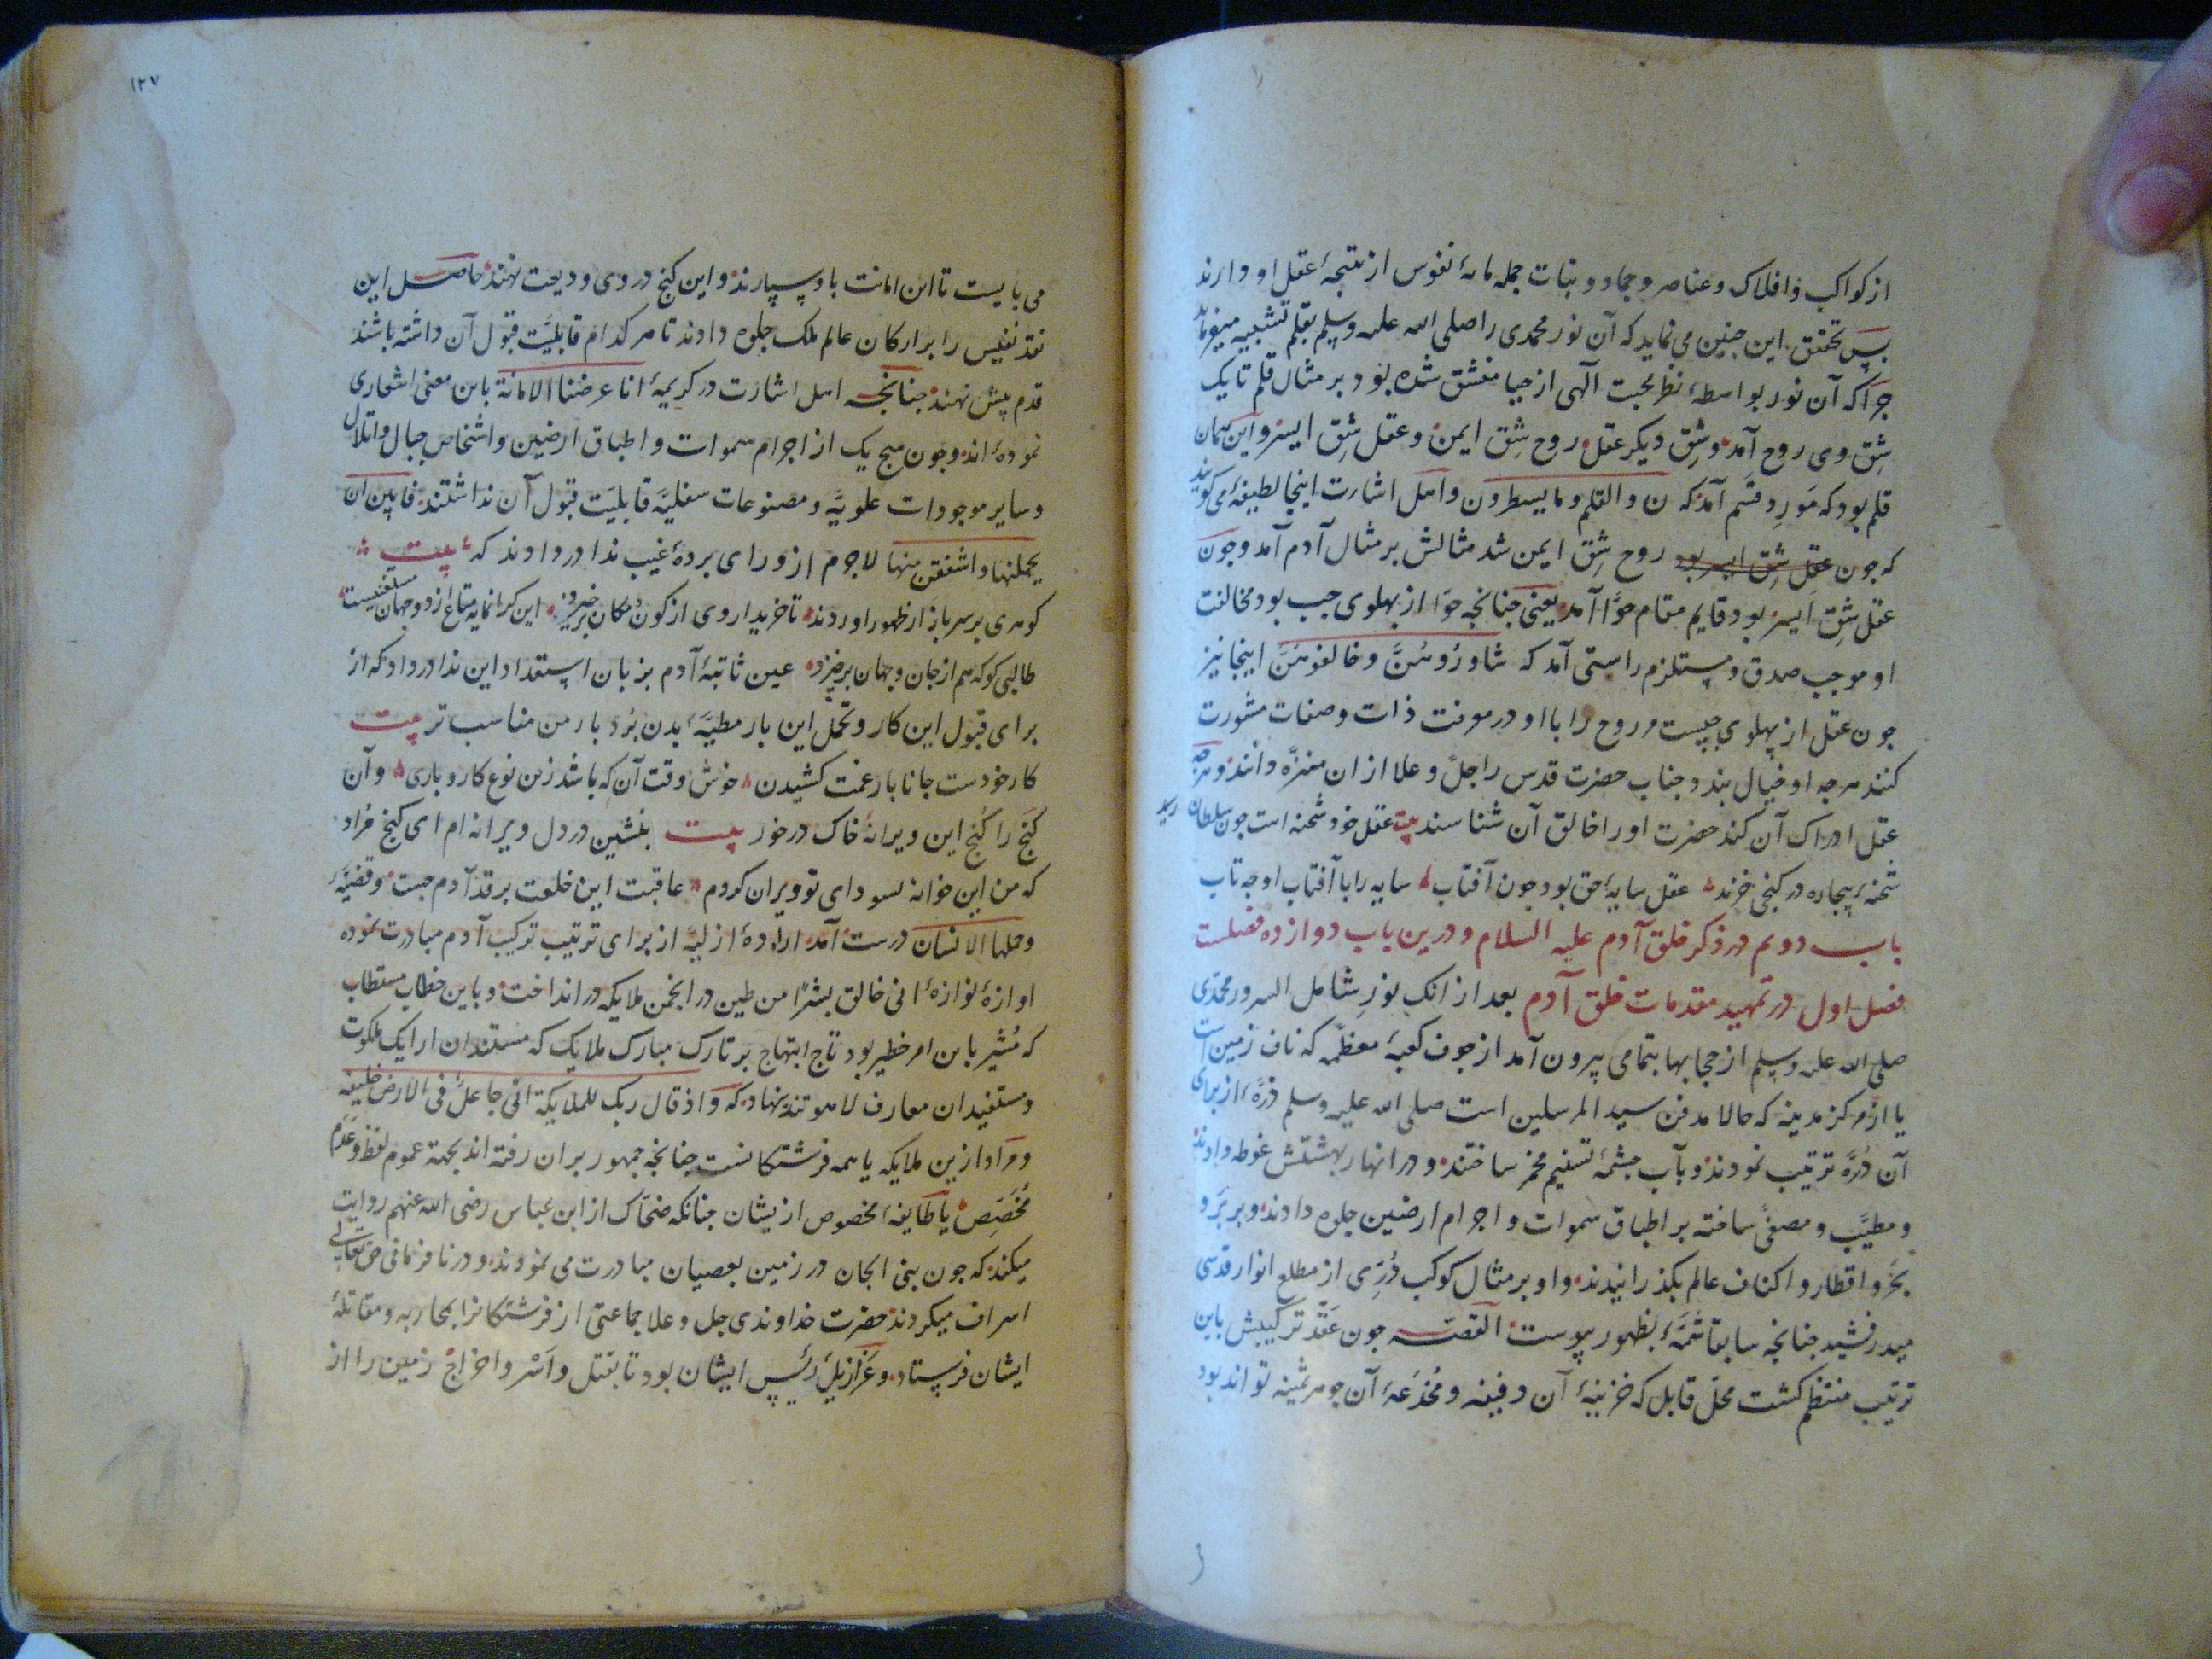 از کواکب و افلاک و عناصر و جماد و نبات جمله مایهٔ نفوس از نتیجهٔ عقل او دارند
پس تحقیق این چنین می نماید که آن نور محمدی را صلی الله علیه وسلم بقلم تشبیه میفرماید
چراکه آن نور بواسطهٔ نظر محبت آلهی از حیا منشق شده بود بر مثال قلم تا یک
شِق وی روح آمد و شِق دیکر عقل روح شِق ایمن و عقل شِق ایسر و این همان
قلم بود که مَورِد قسَم آمد که ن والقلم وما یسطرون و اهل اشارت اینجا لطیفهٔ می کویند
که جون عقل شِق ایسر بود روح شِق ایمن شد مثالش بر مثال آدم آمد و جون
عقل شِق ایسر بود قایم مقام حوّا آمد یعنی جنانجه حوّا از بهلوی جب بود مخالفت
او موجب صدق و مستلزم راستی آمد که شاوِرُوهُنَّ وخالفوهُنَّ اینجا نیز
جون عقل از پهلوی جپست روح را با او در معرفت ذات و صفات مشورت
کنند هرجه او خیال بندد جناب حضرت قدس را جلّ و علا ازان منزَّه دانند و هرجه
عقل ادراک آن کند حضرت او را خالق آن شناسند بیت عقل خود شحنه است جون سلطان رسید
شحنهٔ بیجاره در کنجی خزند عقل سایهٔ حق بود جون آفتاب سایه را با آفتاب او جه تاب
باب دوم در ذکر خلق آدم علیه السلام و درین باب دوازده فصلست
فصل اول در تمهید مقدمات خلق آدم بعد از انک نورِ شامل السرور محمدی
صلی الله علیه وسلم از حجابها بتمامی بیرون آمد از جوف کعبهٔ معظمه که ناف زمین است
یا از مرکز مدینه که حالا مدفن سید المرسلین است صلی الله علیه وسلم ذرّهٔ از برای
آن دُرَّه ترتیب نمودند و بآب جشمهٔ تسنیم مخمر ساختند و در انهار بهشتش غوطه دادند
و مطیَّب و مصفیً ساخته بر اطباق سموات و اجرام ارضین جلوه دادند و بر بَر و
بحَر و اقطار و اکناف عالم بکذرانیدند و او بر مثال کوکب دُرِّی از مطلع انوار قدسی
میدرفشید جنانجه سابقا شمّهٔ بظهور پیوست القصّه جون عَقد ترکیبش باین
ترتیب منتظم کشت محلّ قابل که خزینهٔ آن دفینه و آن جوهر ثمینه تواند بود
۱۲۷
می بایست تا این امانت باو سپارند و این کنج در وی ودیعت نهند حاصل این
نقد نفیس را بر ارکان عالم ملک جلوه دادند تا هرکدام قابلیَّت قبول آن داشته باشند
قدم پیش نهند جنانجه اهل اشارت در کریمهٔ انا عرضنا الامانة باین معنی اشعاری
نموده اند و جون هیج یک از اجرام سموات و اطباق ارضین و اشخاص جبال و اتلال
و سایر موجودات علویَّه و مصنوعات سفلیَّه قابلیَت قبول آن نداشتند فابین ان
یحملنها واشفقن منها لاجرم از ورای بردهٔ غیب ندا در دادند که بیت
کوهری بر سر بازار ظهور اوردند تا خریدار وی از کون و مکان برخیزد این کرانمایه متاع از دو جهان مستغنیست
طالبی کو که هم از جان و جهان برخیزد عین ثابتهٔ آدم بزبان استعداد این ندا در داد که از
برای قبول این کار و تحمّل این بار مطیَّهٔ بدن بُردبار من مناسب تر بیت
کار خودست جانا بار غمت کشیدن خوش وقت آن که باشد زین نوع کار و باری و آن
کنَج را کُنج این ویرانهٔ خاک درخور بیت بنشین در دل ویرانه ام ای کنج مُراد
که من این خوانه بسودای تو ویران کردم عاقبت این خلعت بر قد آدم جست و قضیّهٔ
وحملها الانسان درست آمد ارادهٔ ازلیّه از برای ترتیب ترکیب آدم مبادرت نموده
اوازهٔ نوازهٔ انی خالق بشرًا من طین در انجمن ملایکه در انداخت و باین خطاب مستطاب
که مُشیر باین امر خطیر بود تاج ابتهاج بر تارک مبارک ملایک که مسندان ارایک ملکوت
و مستفیدان معارف لاهوتند نهاد که واذ قال ربک للملایکة انّی جاعلٌ فی الارض خلیفه
و مراد ازین ملایکه یا همه فرشتکانست جنانجه جمهور بران رفته اند بجهة عموم لفظ و عَدم
مُخَصَّص یا طایفهٔ مخصوص ازیشان جنانکه ضحّاک از ابن عباس رضی الله عنهم روایت
میکند که جون بنی الجان در زمین بعصیان مبادرت می نمودند و در نافرمانی حق تعالی
اسراف میکردند حضرت خداوندی جل و علا جماعتی از فرشتکانرا بمحاربه و مقاتلهٔ
ایشان فرستاد و عَزازیل رئیس ایشان بود تا بقتل و اسْر و اخراج زمین را از